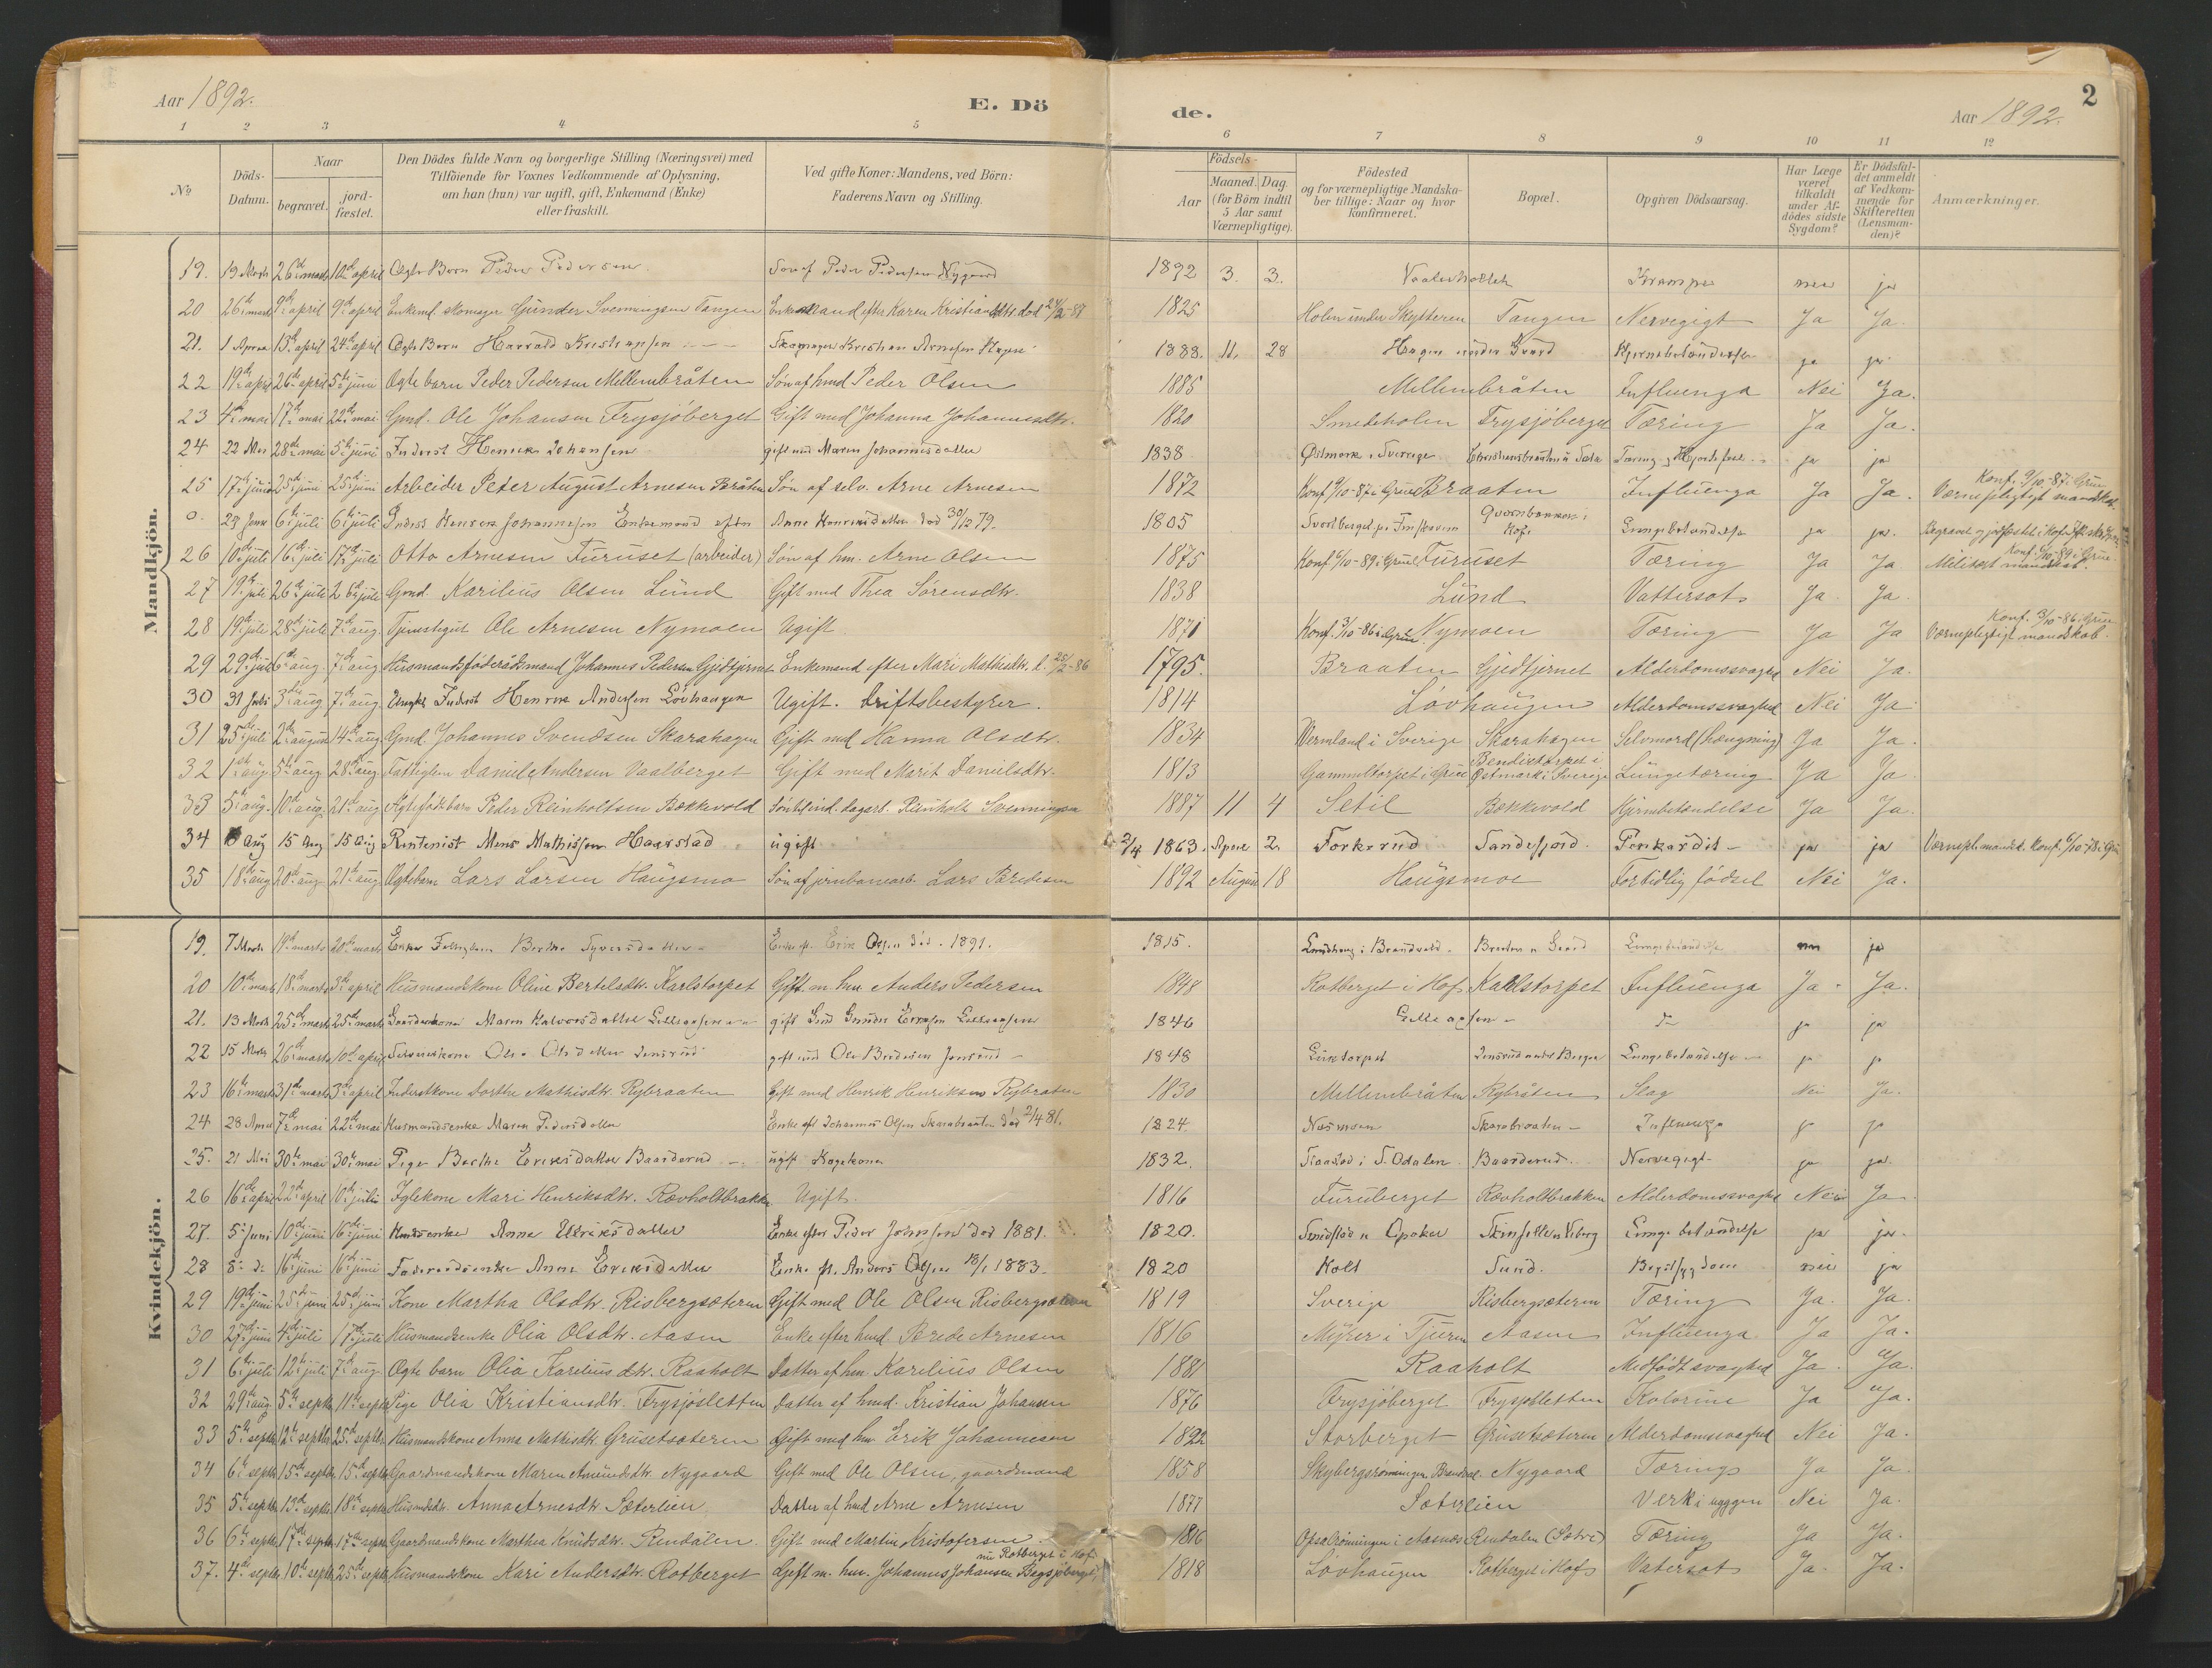 Aar 1892.
E. Dö
de.
2
Aar 1892.
1 2 3 4 5 6 7 8 9 10 11 12
No
Döds-Datum.
Naar begravet. jord-fæstet.
Den Dödes fulde Navn og borgerlige Stilling (Næringsvei) med Tilföiende for Voxnes Vedkommende af Oplysning, om han (hun) var ugift, gift, Enkemand (Enke) eller fraskilt.
Ved gifte Koner: Mandens, ved Börn: Faderens Navn og Stilling.
Födsels-
Aar Maaned. Dag. (for Börn indtil 5 Aar samt Værnepligtige).
Födested og for værnepligtige Mandskaber tillige: Naar og hvor konfirmeret.
Bopæl.
Opgiven Dödsaarsag.
Har Læge været tilkaldt under Afdödes sidste Sygdom?
Er Dödsfaldet anmeldt af Vedkommende for Skifteretten (Lensmanden)?
Anmærkninger.
Mandkjön.
19. 19 Marts 26de marts 10de april Ægte Barn Peder Pedersen Søn af Peder Pedersen Nygaard 1892 3. 3. Krampe nei ja
20 26de marts 9de april 9de april Enkemd. skomager Gunder Svenningsen Tangen Enkemand efter Karen Kristiansdtr. død 1825 Holen under Skytteren Tangen Nervegigt Ja Ja.
21. 1 April 15de april 24de april Ægte Barn Harrald Kristiansen 1888. 11. 28 Hagen under Grøsd ja ja
22 19de april 26de april 5te juni Ægte barn Peder Pedersen Mellembråten Søn af hmd Peder Olsen 1885 Mellembråten Influenza Nei Ja.
23 4de mai 17de mai 22de mai Gmd. Ole Johansen Frysjøberget Gift med Johanna Johannesdtr. 1820 Smedeholen Frysjøberget Tæring Ja Ja.
24 22 Mai 28de mai 5te juni Inderst Henrik Johansen gift med Maren Johannisdatter 1838 Østmark i Sverige ja ja
25 17de juni 25de juni 25de juni Arbeider Peter August Arnesen Bråten Søn af selv. Arne Arnesen 1872 Konf. 9/10-87 i Grue Braaten Influenza Ja Ja. Konf. 9/10-87 i Grue Værnepligtigt mandskab.
0. 6te juli 6te juli Inderst Henrik Johannesen Enkemand efter Anne Henriksdatter død 30/12 79. 1805 Lungebetændelse ja ja.
26 10de juli 16de juli 17de juli Otto Arnesen Furuset (arbeider) Søn af hm. Arne Olsen 1875 Konf 6/10-89 i Grue Furuset Tæring Ja Ja Konf. 6/10-89 i Grue. Militært mandskab.
27 19de juli 26de juli 26de juli Gmd. Karilius Olsen Lund Gift med Thea Sørensdtr. 1838 Lund Vattersot Ja. Ja
28 19de juli 28de juli 7de aug. Tjenestegut Ole Arnesen Nymoen Ugift 1871 Konf. 3/10-86 i Grue Nymoen Tæring Ja Ja Konf. 3/10-86 i Grue Værnepligtigt mandskab.
29 29de juli 6te aug. 7de aug Husmandsføderådsmand Johannes Pedersen Gjedtjernet Enkemand efter Mari Mathisdtr. 1795. Braaten Gjedtjernet Alderdomssvaghed Nei Ja.
30 31 Juli 3die aug 7de aug. Ungkl Inderst Henrik Andersen Løvhaugen Ugift. Driftsbestyrer. 1814 Løvhaugen Alderdomssvaghed Nei Ja
31 25de juli 2de august 14de aug. Gmd. Johannes Svendsen Skarahagen Gift med Hanna Olsdtr. 1834 Vermland i Sverige Skarahagen Selvmord (hængning) Ja Ja.
32 1ste aug 5te aug. 28de aug Fattiglem Daniel Andersen Vaalberget Gift med Marit Danielsdtr. 1813 Gammeltorpet i Grue Bendiktorpet i Østmark i Sverige Lungetæring Ja Ja
33 5te aug. 10de aug. 21de aug Ægtefødt barn Peder Reinholtsen Bækkevold Søn til ind. dagarb. Reinholt Svenningsen 1887 11 4 Setil Bækkevold Hjernebetændelse Ja Ja.
34 Aug 15 Aug 15 Aug Rentenist Mens Mathissen Haarstad ugift 2/4 1863. April 2. Forkerud Sandefjord. Perikardit ja ja Værnepl. mandsk. Konf. 6/10-78 i Grue
35 18de aug 20de aug. 21de aug Ægtebarn Lars Larsen Haugsmo Søn af jernbanearb. Lars Bredesen 1892 August 18 Haugsmoe Fortidlig fødsel Nei Ja.
Kvindekjön.
19. 7 Marts 19de marts 20de marts Enke Fattiglem Berthe Syversdatter Enke eft. Erik Olsen død. 1891. 1815. Lundhaug i Brandvold Lungebetændelse nei ja
20 10de marts 18de marts 3de april Husmandskone Oline Bertelsdtr. Karlstorpet Gift m. hm. Anders Pedersen 1848 Rotberget i Hof Karlstorpet Influenza Ja. Ja.
21. 13 Marts 25de marts 25de marts Gaardmandskone Maren Halvorsdatter gift med Gunder Eriksen 1846 do ja ja
22 15 Marts 26de marts 10de april Selveierskone Olea Olsdatter Jensrud gift med Ole Bredesen Jensrud 1848 Lungebetændelse ja ja
23 16de marts 31de marts 3de april Inderstkone Dorthe Mathisdtr. Rybraaten Gift med Henrik Henriksen Rybraaten 1830 Mellembråten Rybråten Slag Nei Ja.
24 28 April 7de mai 22de mai Husmandsenke Maren Pedersdatter Enke eft Johannes Olsen Skarabraaten død 2/4 81. 1824. Næsmoen Skarabraaten Influenza ja ja
25. 21 Mai 30te mai 30te mai Pige Berthe Eriksdatter Baarderud ugift Kogekone 1832. i S. Odalen Baarderud. Nervegigt ja ja.
26 16de april 22de april 10de juli Iglekone Mari Henriksdtr. Rævholtbrakken Ugift. 1816 Furuberget Rævholtbrakken Alderdomssvaghed Nei Ja
27. 5te Juni 10de juni 16de juni Husmsenke Anne Ulriksdatter Enke efter Peder Johnsen død 1881. 1820. Lungebetændelse ja ja.
28 8de do 16de juni 16de juni Føderaadsenke Anne Eriksdatter Enke eft. Anders Olsen 18/1 1883. 1820 Holt Sund. nei ja
29 19de juni 25de juni 25de juni Kone Martha Olsdtr. Risbergsæteren Gift med Ole Olsen Risbergsæteren 1819 Sverige Risbergsæteren Tæring Ja. Ja.
30 27de juni 4de juli 17de juli Husmandsenke Olia Olsdtr. Aasen Enke efter hmd. Brede Arnesen 1816 Myrer i Tjuren Aasen Influenza. Ja Ja.
31 6te juli 12te juli 7de aug. Ægte barn Olia Kareliusdtr. Raaholt Datter af hm. Karilius Olsen 1881 Raaholt Medfødt svaghed Ja Ja.
32 29de aug. 5te septbr 11te septbr Pige Olia Kristiansdtr. Frysjøsletten Datter af hmd. Kristian Johansen 1876 Frysjøberget Frysjøsletten Kolerine Ja Ja.
33 5te septbr 12te septbr 25de septbr. Husmandskone Anna Mathisdtr. Grusetsæteren Gift med hm. Erik Johannesen 1822 Storberget Grusetsæteren Alderdomssvaghed Nei Ja.
34 6te septbr 15de septbr 15de septbr Gaardmandskone Maren Amundsdtr. Nygaard Gift med Ole Olsen, gaardmand 1858 Skybergsrønningen Brandval. Nygaard Tæring Ja Ja.
35 5te septbr 13de septbr 18de septbr Husmdsdtr. Anna Arnesdtr. Sæterlien Datter af hmd Arne Arnesen 1877 Sæterlien Verk i ryggen Nei Ja.
36 6te septbr 17de septbr 17de septbr Gaardmandskone Marthea Knudsdtr. Rendalen. Gift med Martin Kristofersen. 1816 Opsalrønningen i Aasnæs Rendalen Tæring Ja Ja.
37. 4de septbr 10de septbr 25de septbr Husmandskone Kari Andersdtr. Rotberget Gift m. hm. Johannes Johansen Bergsjøberget, nu Rotberget i Hof. 1818 Løvhaugen Rotberget i Hof Vatersot Ja. Ja.